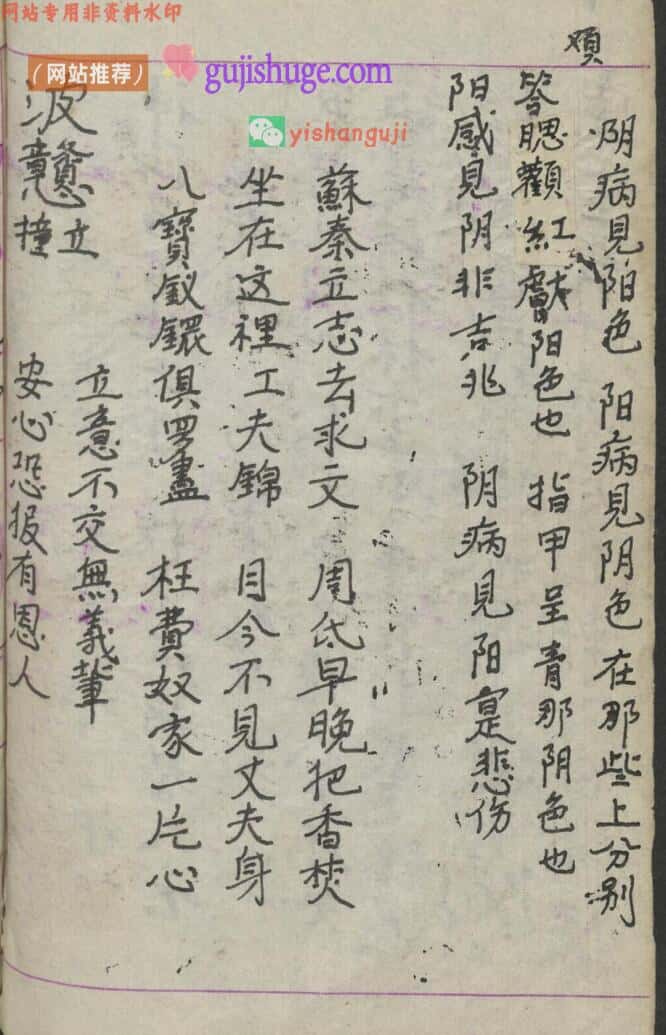 网站专用非资料水印
（网站推荐） gujishuge.com
yishanguji
阴病见阳色 阳病见阴色 在那些上分别
答腮颧红 阳色也 指甲呈青那阴色也
阳感见阴非吉兆 阴病见阳寔悲伤
蘇秦立志去求文 周氏早晚把香焚
坐在这裡工夫錦 目今不見丈夫身
八寶釵鐶俱罗盡 枉費奴家一片心
立
立意不交無義輩
撞
安心恐报有恩人